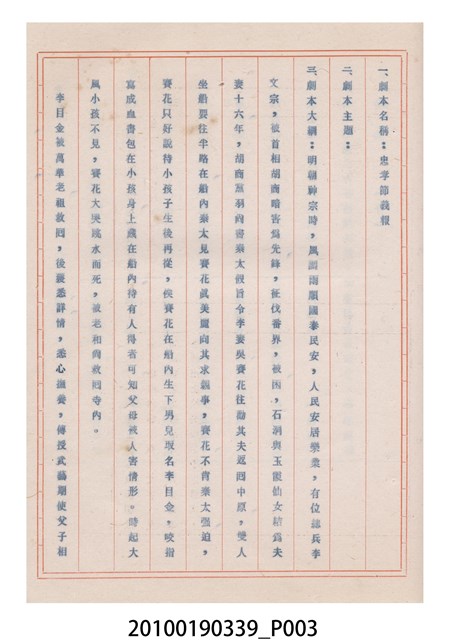 一、劇本名稱：忠孝節義報
二、劇本主題：
三、劇本大綱：明朝神宗時，風調雨順國泰民安，人民安居樂業，有位總兵李
文宗，被首相胡商暗害為先鋒，征伐番界，被困，石洞與玉霞仙女結為夫
妻十六年，胡商黨羽內書秦太假旨令李妻吳賽花往勸其夫返回中原，雙人
坐船要往半路在船內秦太見賽花真美麗向其求親事，賽花不肯秦太强迫，
賽花只好說待小孩子生後再從，候賽花在船內生下男兒取名李目金，咬指
寫成血書包在小孩身上藏在船內待有人得着可知父母被人害情形。時起大
風小孩不見，賽花大哭跳水而死，被老和尚救回寺內。
李目金被萬華老祖救回，後獲悉詳情，悉心撫養，傳授武藝期使父子相
20100190339_P003